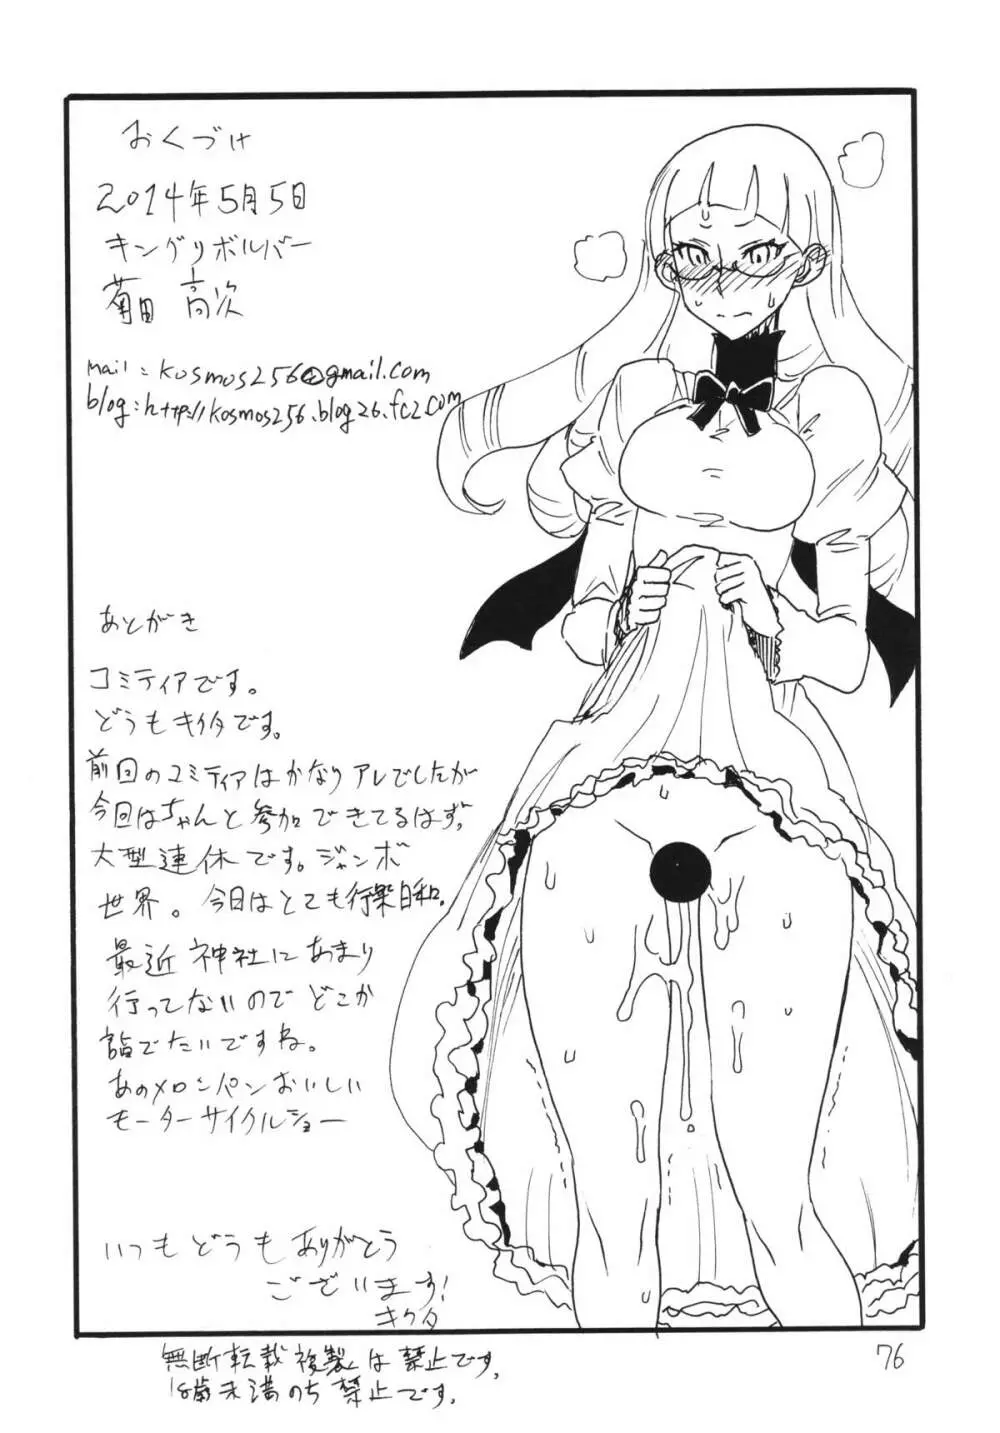 おくづけ
2014年5月5日
キングリボルバー
菊田 高次
mail: kosmos256@gmail.com
blog: http://kosmos256.blog26.fc2.com
あとがき
コミティアです。
どうもキクタです。
前回のコミティアはかなりアレでしたが
今回はちゃんと参加できてるはず。
大型連休です。ジャンボ
世界。今日はとても行楽日和。
最近神社にあまり
行ってないのでどこか
詣でたいですね。
あのメロンパンおいしい
モーターサイクルショー
いつもどうもありがとう
ございます!
キクタ
無断転載複製は禁止です。
18歳未満のち禁止です。
76